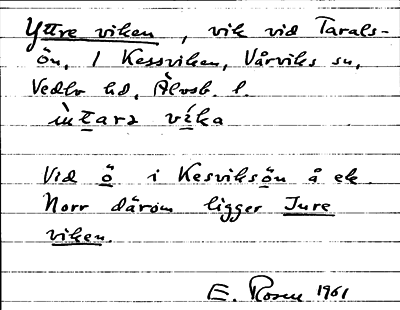 Yttre viken, vik vid Tarals-
ön, I Kessviken, Vårviks sn,
Vedbo hd, Älvsb. l.
ìtara véka
Vid ö i Kesviksön å ek.
Norr därom ligger Jure
viken.
E. Rosen 1961